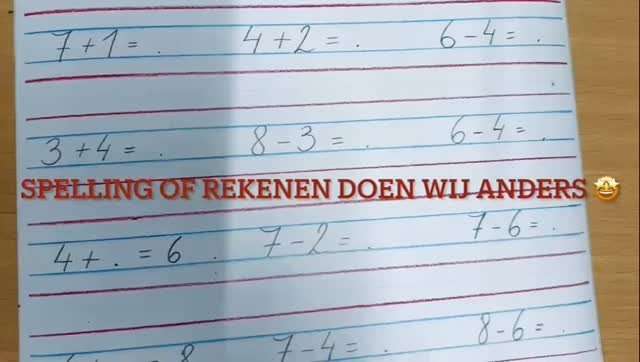 7 + 1 = . 4 + 2 = . 6 - 4 = .
3 + 4 = . 8 - 3 = . 6 - 4 = .
SPELLING OF REKENEN DOEN WIJ ANDERS 🤩
4 + . = 6 . 7 - 2 = . 7 - 6 = .
= 8 7 - 4 = . 8 - 6 = .